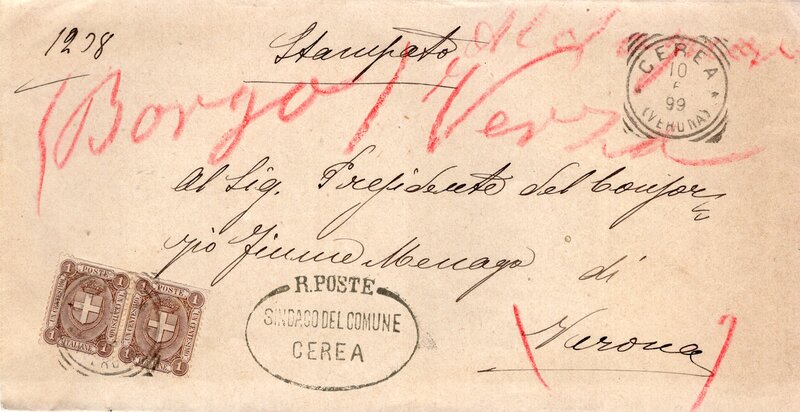 1208
Stampato
CEREA
10
99
(VERONA)
(Borgo) Verza
Al Sig. Presidente del Consor
zio Fiume Menago di
Verona
R. POSTE
SINDACO DEL COMUNE
CEREA
1 POSTE 1
UN CENTESIMO
ITALIANE
1 POSTE 1
UN CENTESIMO
ITALIANE